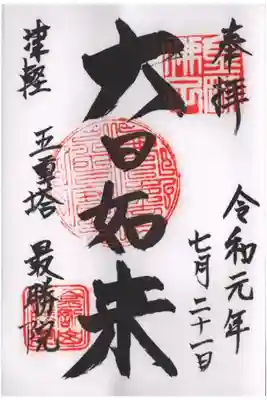 奉拝
令和元年
七月二十一日
大日如来
津軽
五重塔 最勝院